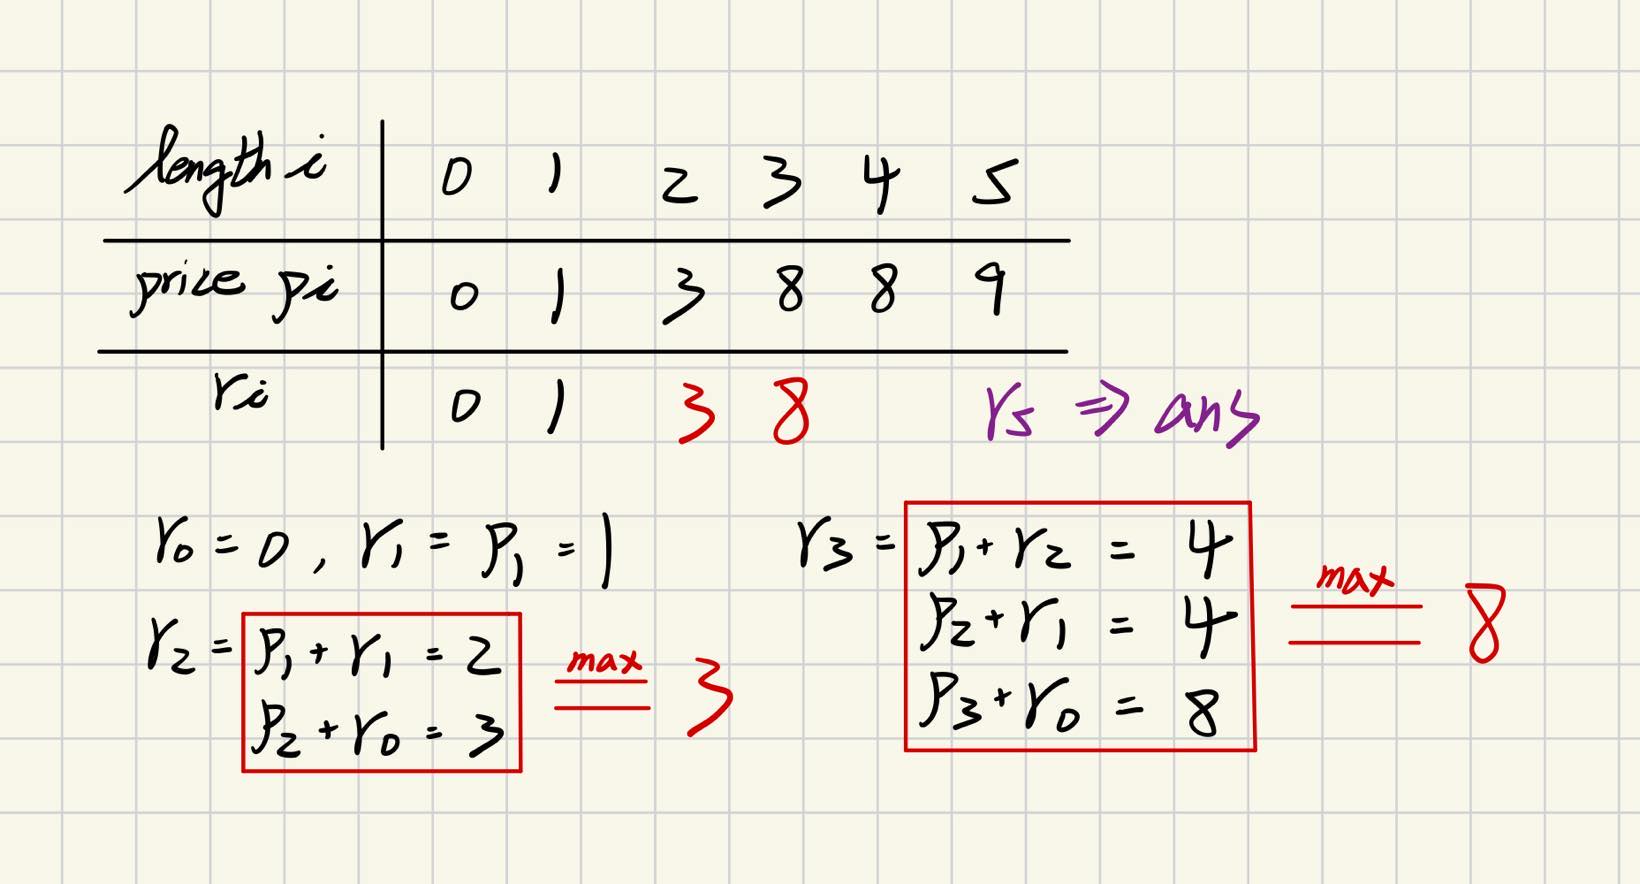 length i 0 1 2 3 4 5
price pi 0 1 3 8 8 9
ri 0 1 3 8 r5 ⇒ ans
r0 = 0, r1 = p1 = 1
r2 = p1 + r1 = 2
p2 + r0 = 3
max 3
r3 = p1 + r2 = 4
p2 + r1 = 4
p3 + r0 = 8
max 8